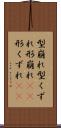 型崩れ型くず
れ形崩れ
形くずれ